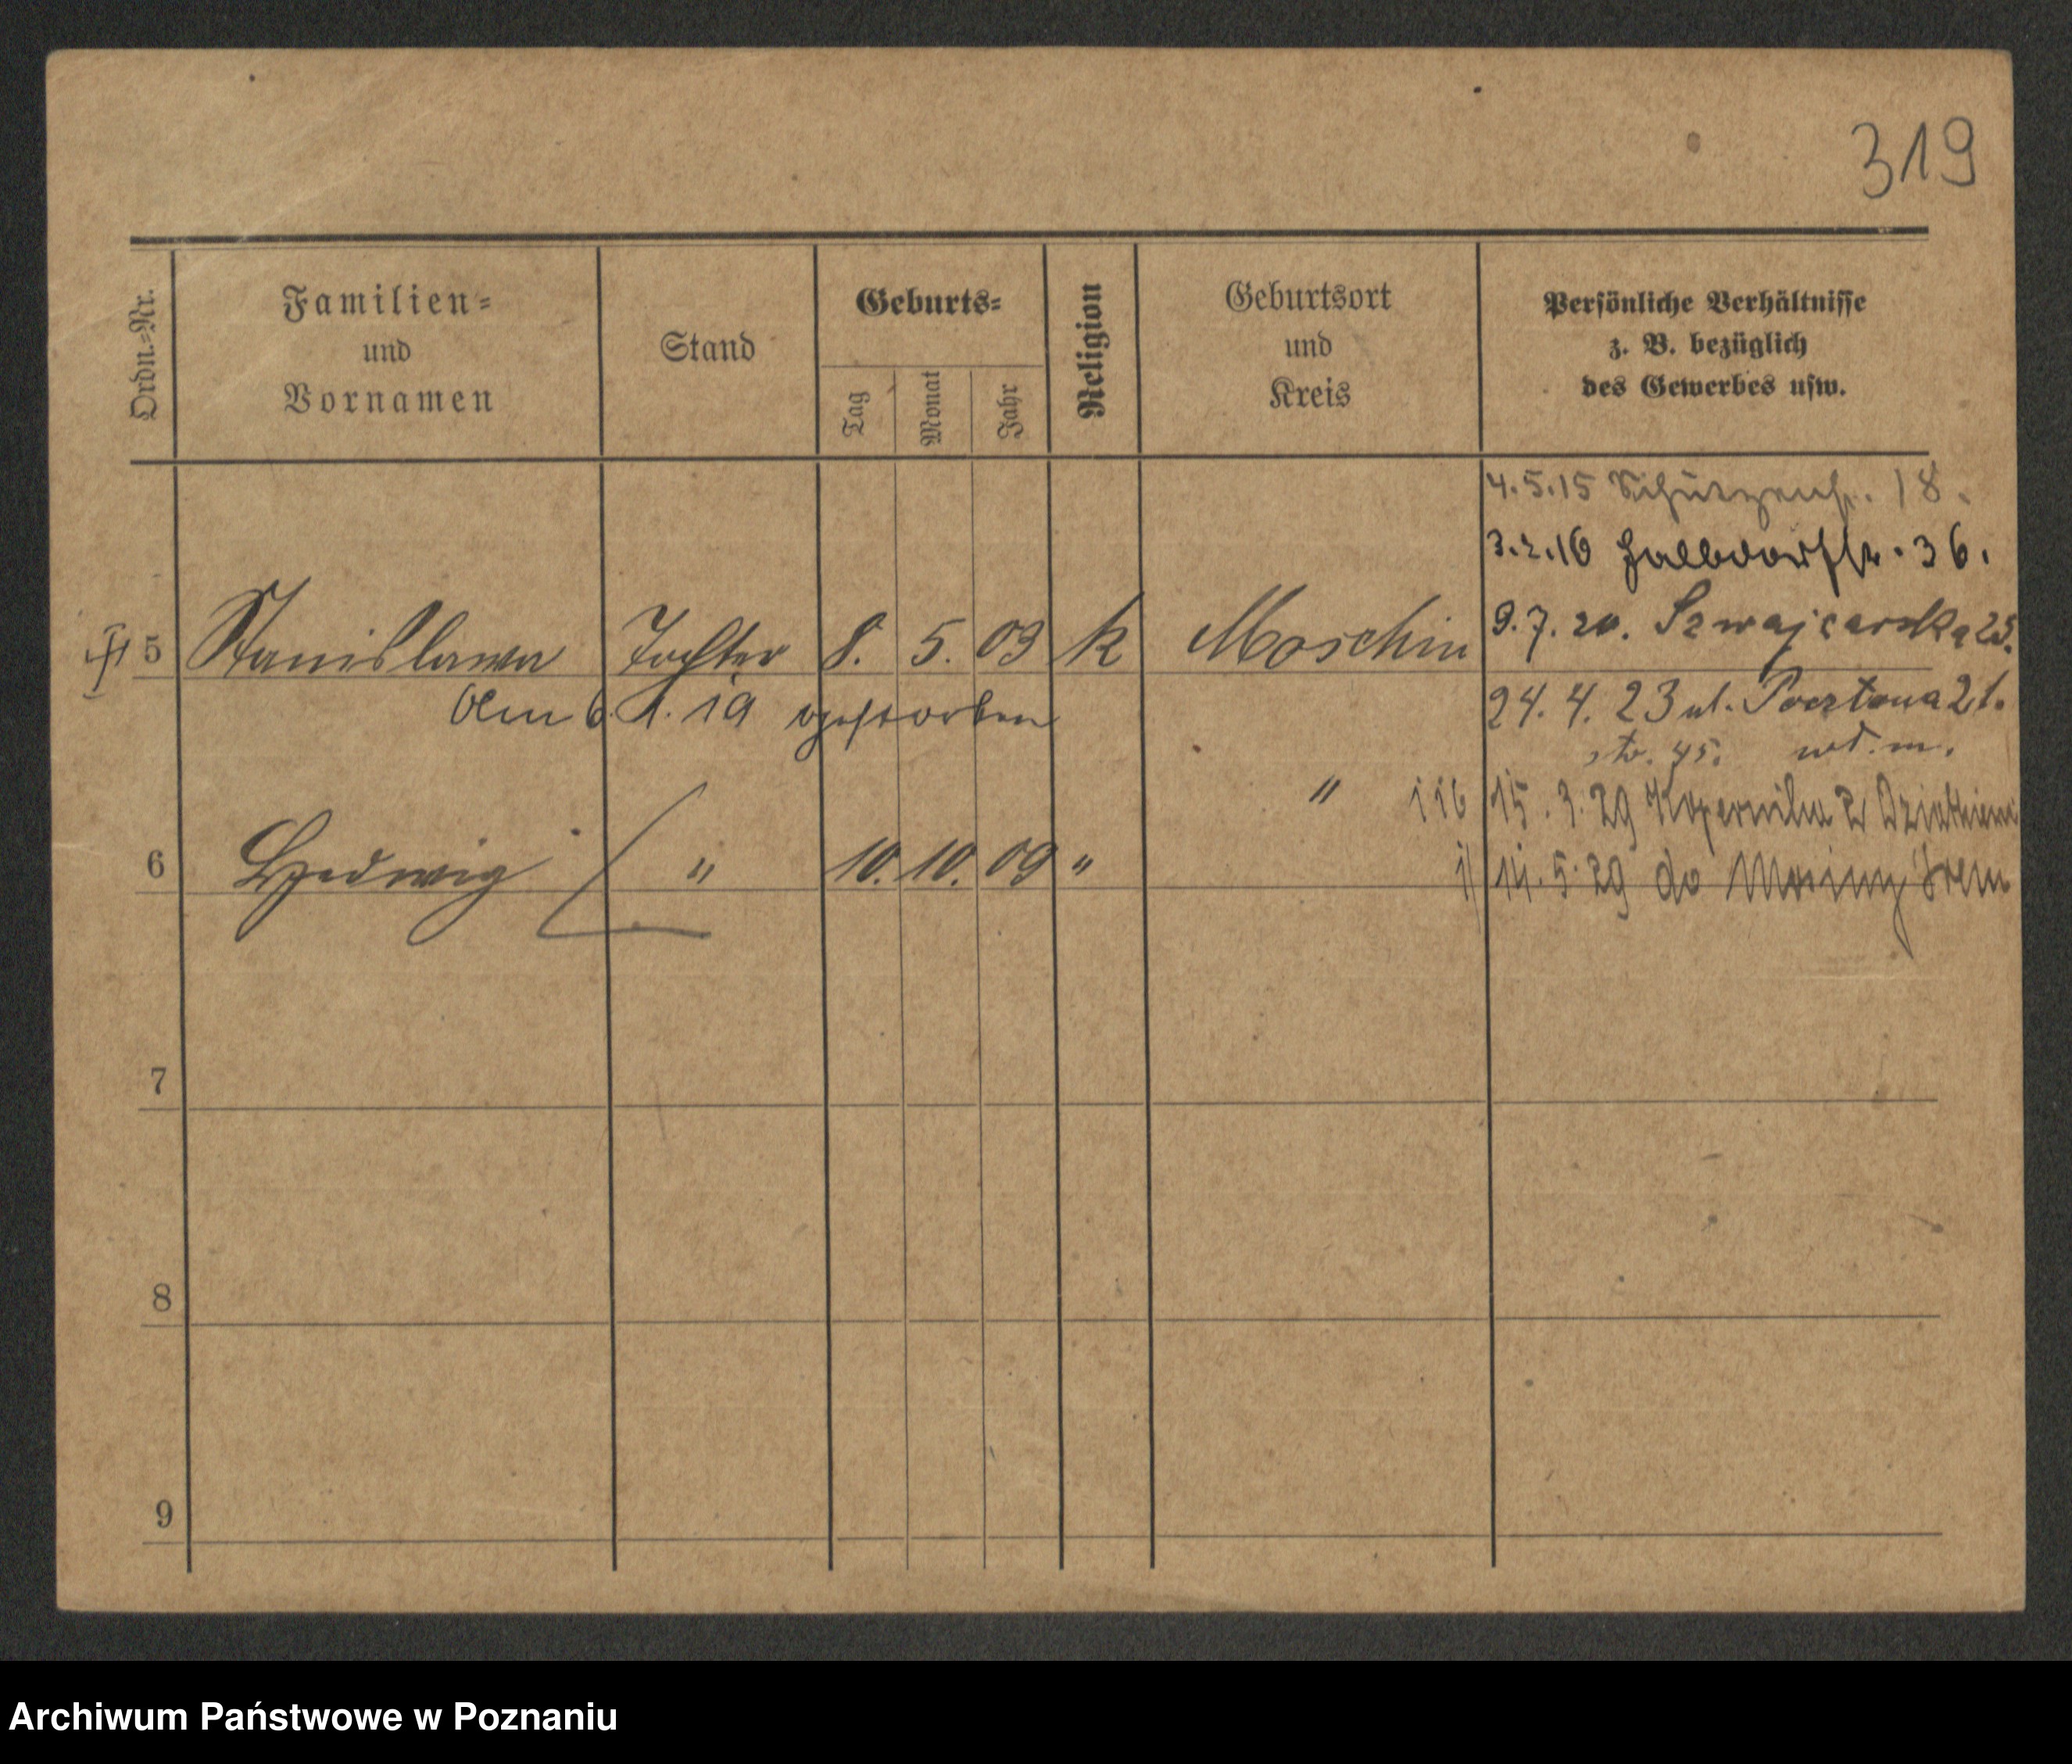 319
Ordn.-Nr.
Familien-
und
Vornamen
Stand
Geburts-
Tag
Monat
Jahr
Religion
Geburtsort
und
Kreis
Persönliche Verhältnisse
z. B. bezüglich
des Gewerbes usw.
4.5.15 Schützenstr. 18.
3.2.16 Halbdorfstr. 36.
5 Stanislawa Tochter 8. 5. 09 k Moschin 9.7.20. Szwajcarska 25.
Am 6. 1. 19 gestorben
24. 4. 23 ul. Pocztowa 21.
str. 45.
" 116 15. 3. 29 Kopernika
6 Hedwig " 10. 10. 09 "
14. 5. 29 do Mosiny Śrem
7
8
9
Archiwum Państwowe w Poznaniu